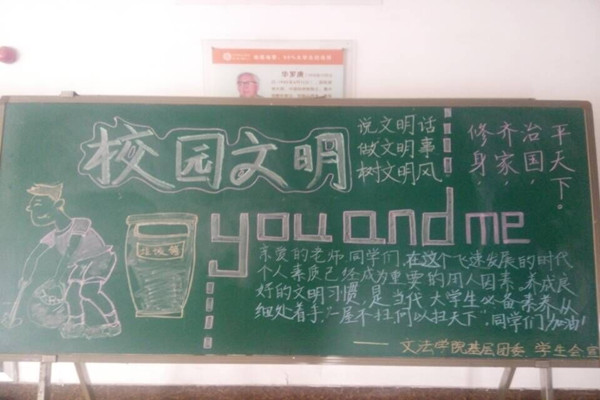 校园文明
说文明话
做文明事
树文明风
修身、
齐家、
治国、
平天下。
you and me
垃圾桶
亲爱的老师同学们,在这个飞速发展的时代
个人素质已经成为重要的用人因素,养成良
好的文明习惯,是当代大学生必备素养,从
细处着手,"一屋不扫,何以扫天下",同学们,加油!
——文法学院基层团委 学生会宣